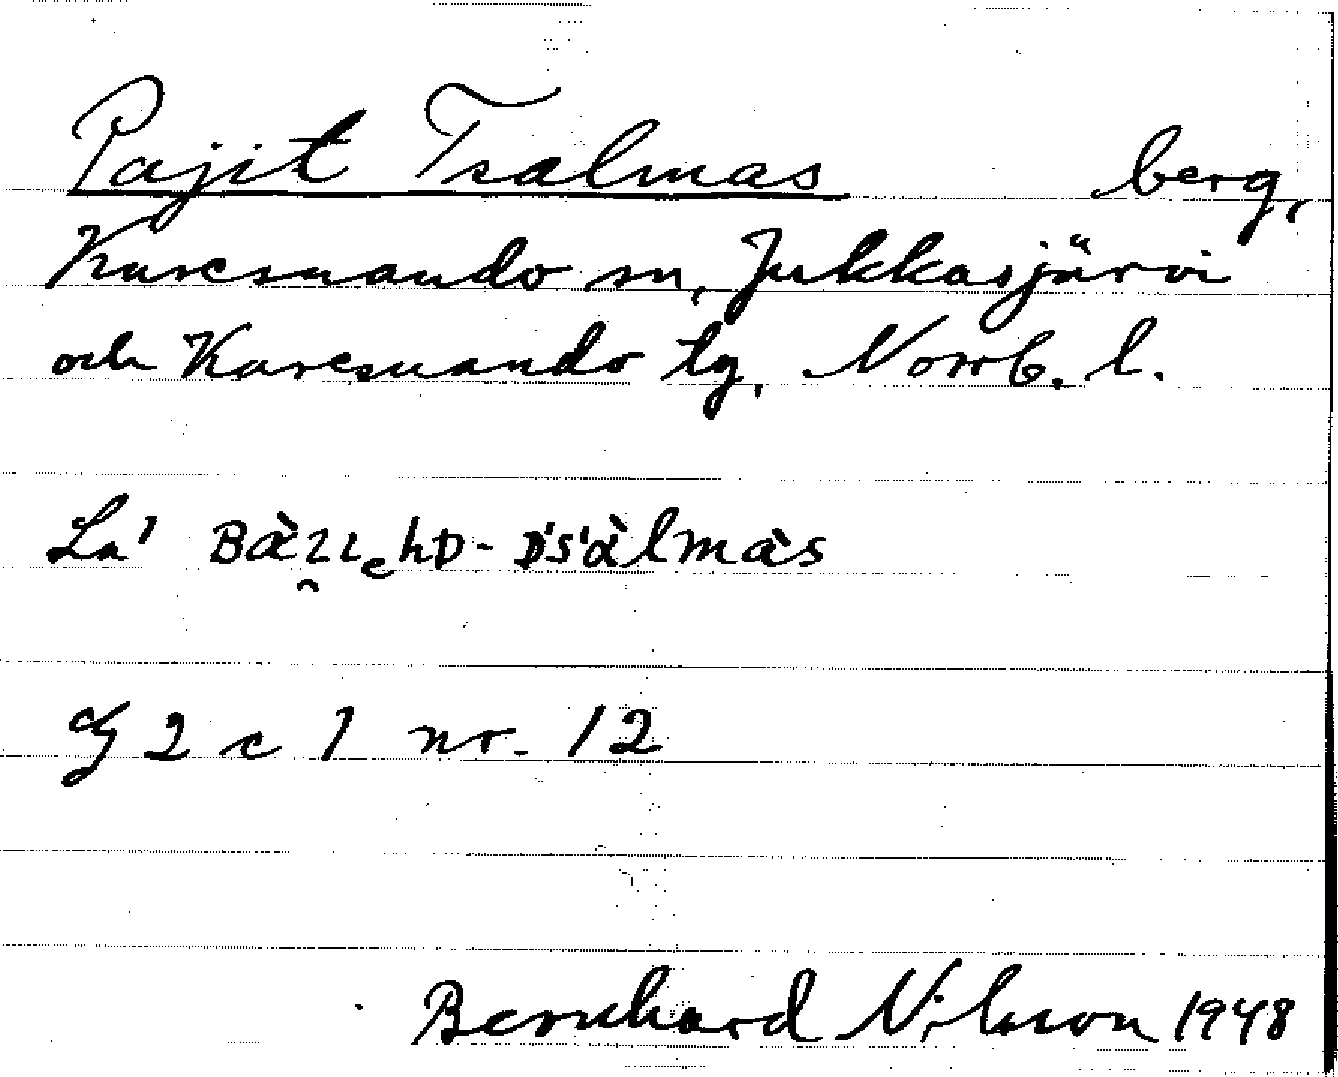 Pajit Tsalmas berg,
Karesuando sn, Jukkasjärvi
och Karesuando tg, Norrb. l.
La'
G 2 c 1 nr. 12
Bernhard Nilsson 1948